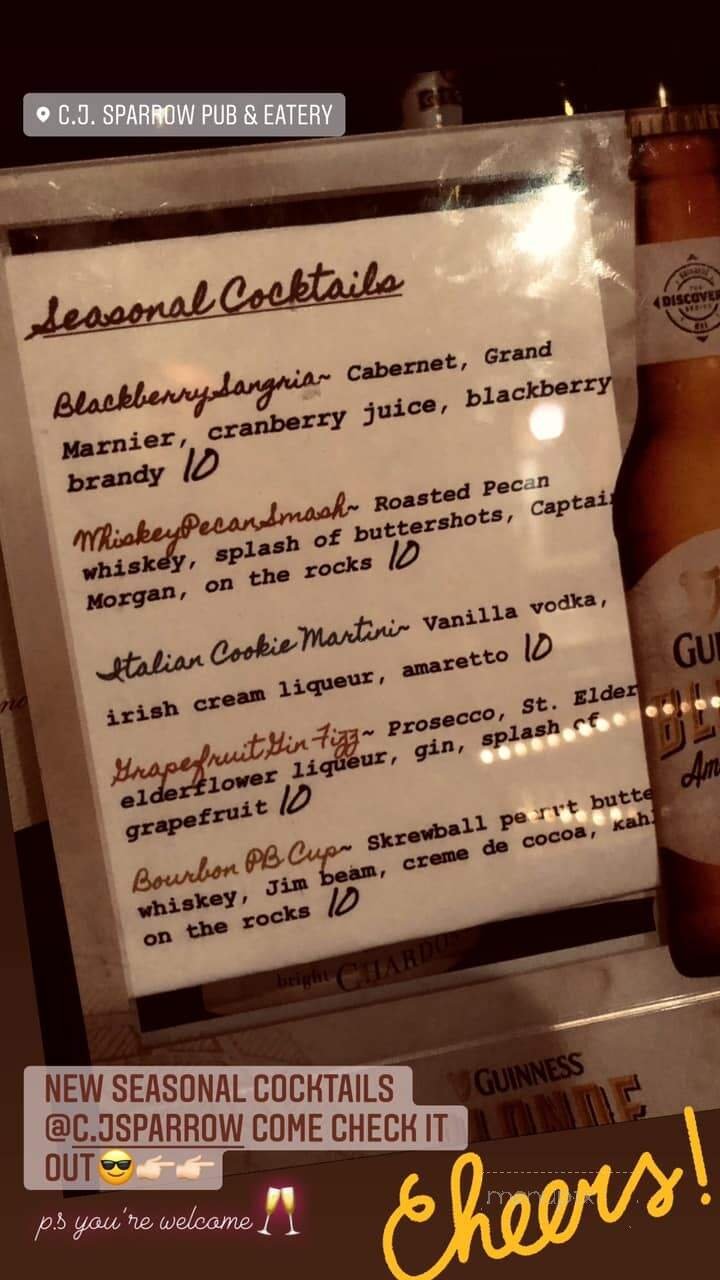 C.J. SPARROW PUB & EATERY
Seasonal Cocktails
Blackberry Sangria~ Cabernet, Grand
Marnier, cranberry juice, blackberry
brandy 10
Whiskey Pecan Smash~ Roasted Pecan
whiskey, splash of buttershots, Captain
Morgan, on the rocks 10
Italian Cookie Martini~ Vanilla vodka,
irish cream liqueur, amaretto 10
Grapefruit Gin Fizz~ Prosecco, St. Elder
elderflower liqueur, gin, splash of
grapefruit 10
Bourbon PB Cup~ Skrewball peanut butte
whiskey, Jim beam, creme de cocoa, kahl
on the rocks 10
DISCOVER
GUI
BL
Am
bright CHARDO
GUINNESS
LONDE
NEW SEASONAL COCKTAILS
@C.JSPARROW COME CHECK IT
OUT😎👉🏻👉🏻
p.s you're welcome🥂
Cheers!